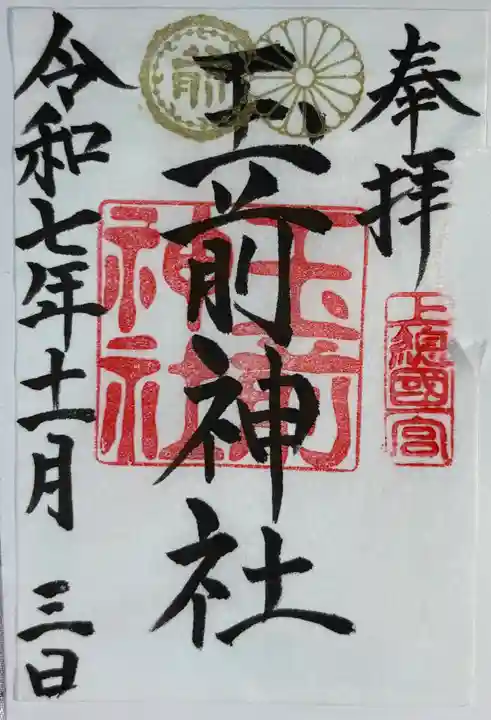 奉拝
上總國一宮
玉前神社
玉前神社
令和七年十一月三日